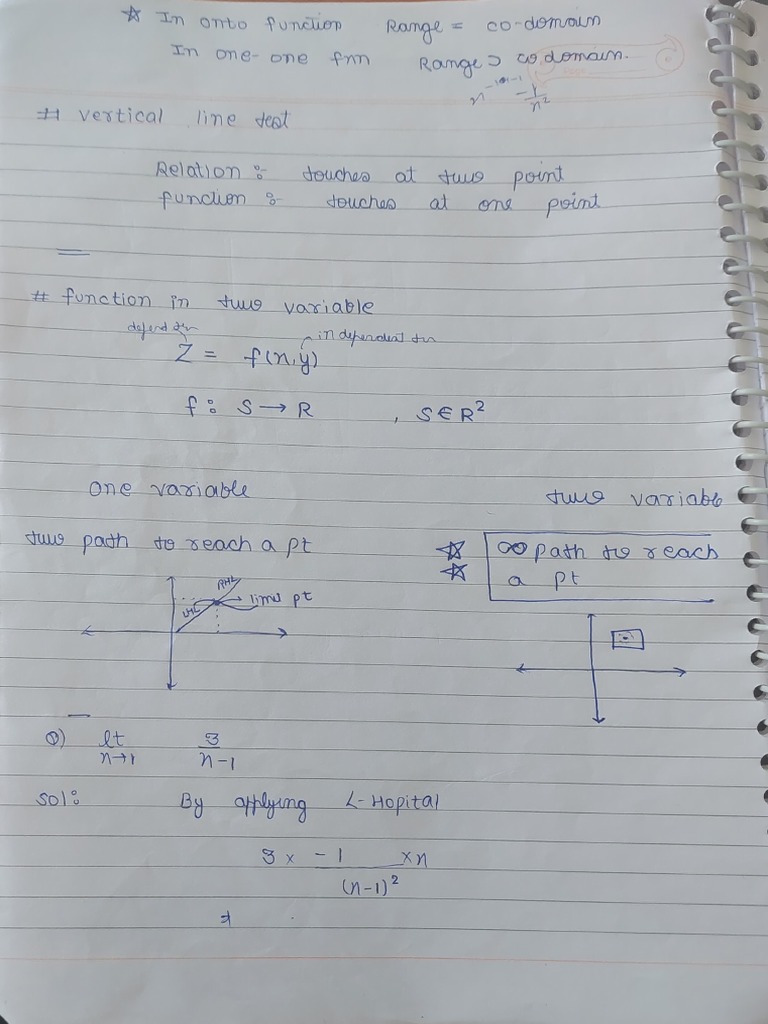 ☆ In onto function Range = co-domain
In one-one fnn Range ⊃ co domain.
-1/n²
# vertical line test
Relation :- touches at two point
function :- touches at one point
# function in two variable
independent
Z = f(n,y)
f : S → R , S ∈ R²
one variable two variable
two path to reach a pt
☆ ☆ ∞ path to reach a pt
RHL
LHL
pt
Q) lt n→1 3/(n-1)
Sol: By applying L-Hopital
3 × -1/(n-1)² × n
⇒